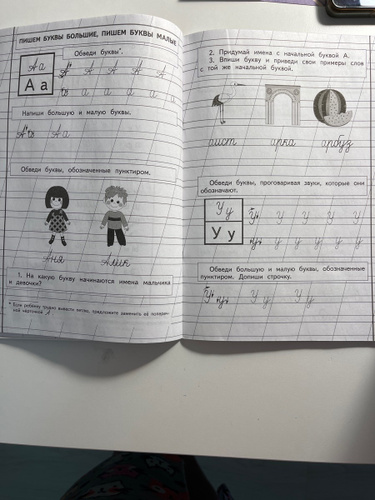 ПИШЕМ БУКВЫ БОЛЬШИЕ, ПИШЕМ БУКВЫ МАЛЫЕ
Обведи буквы*.
А а
А а
А А А А А
а а а а а а
Напиши большую и малую буквы.
А а А а
Обведи буквы, обозначенные пунктиром.
Аня Алик
1. На какую букву начинаются имена мальчика
и девочки?
* Если ребёнку трудно
2. Придумай имена с начальной буквой А.
3. Впиши букву и приведи свои примеры слов
с той же начальной буквой.
аист арка арбуз
Обведи буквы, проговаривая звуки, которые они
обозначают.
У у
У у
У У У У У
у у у у у
Обведи большую и малую буквы, обозначенные
пунктиром. Допиши строчку.
У у У у У у